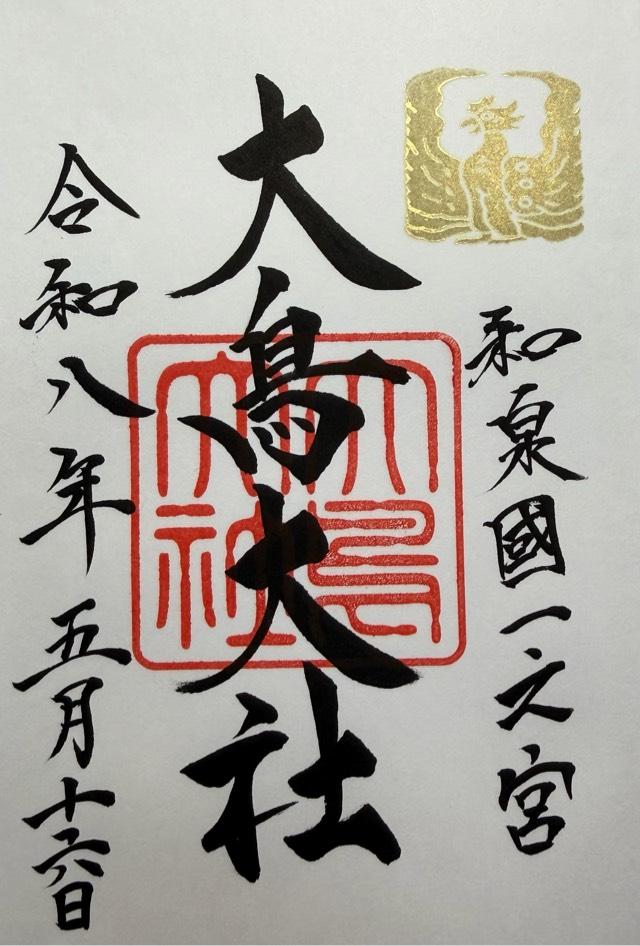 和泉國一之宮
大鳥大社
大鳥大社
令和八年五月十六日